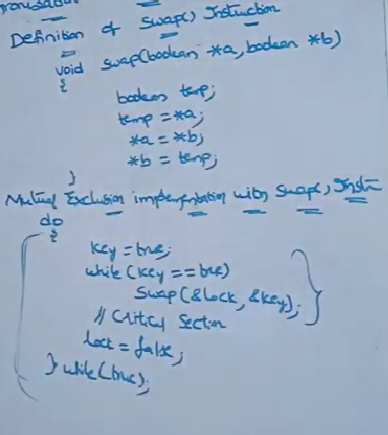 Definition of Swap() Instruction
void swap(boolean *a, boolean *b)
{
boolean temp;
temp = *a;
*a = *b;
*b = temp;
}
Mutual Exclusion implementation with Swap() Instn
do
{
key = true;
while (key == true)
Swap(&lock, &key);
// Critical Section
lock = false;
} while(true);